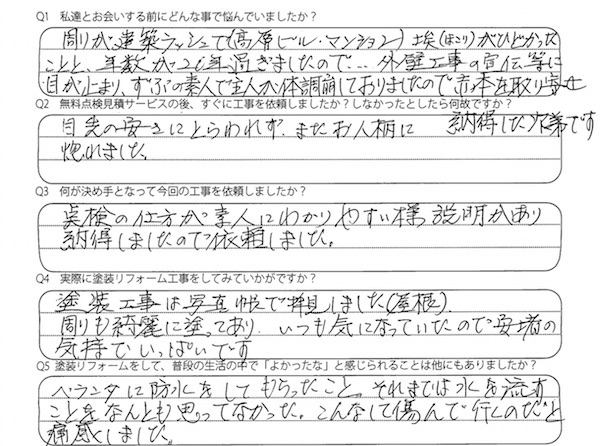 Q1 私達とお会いする前にどんな事で悩んでいましたか？
周りが建築ラッシュで(高層ビル・マンション)埃(ほこり)がひどかった
ことと、年数が20年過ぎましたので… 外壁工事の宣伝等に
目が止まり、ずぶの素人で主人が体調崩しておりましたので 本を取り寄せ
Q2 無料点検見積サービスの後、すぐに工事を依頼しましたか？しなかったとしたら何故ですか？
目先の安さにとらわれず、またお人柄に 納得した次第です
惚れました。
Q3 何が決め手となって今回の工事を依頼しましたか？
点検の仕方が素人にわかりやすい様 説明があり
納得しましたので依頼しました。
Q4 実際に塗装リフォーム工事をしてみていかがですか？
塗装工事は写真帳で拝見しました(屋根)
周りも綺麗に塗ってあり、いつも気になっていたので安堵の
気持でいっぱいです
Q5 塗装リフォームをして、普段の生活の中で「よかったな」と感じられることは他にもありましたか？
ベランダに防水をしてもらったこと。それまでは水を流す
ことをなんとも思ってなかった。こんなして傷んで行くのだと
痛感しました。